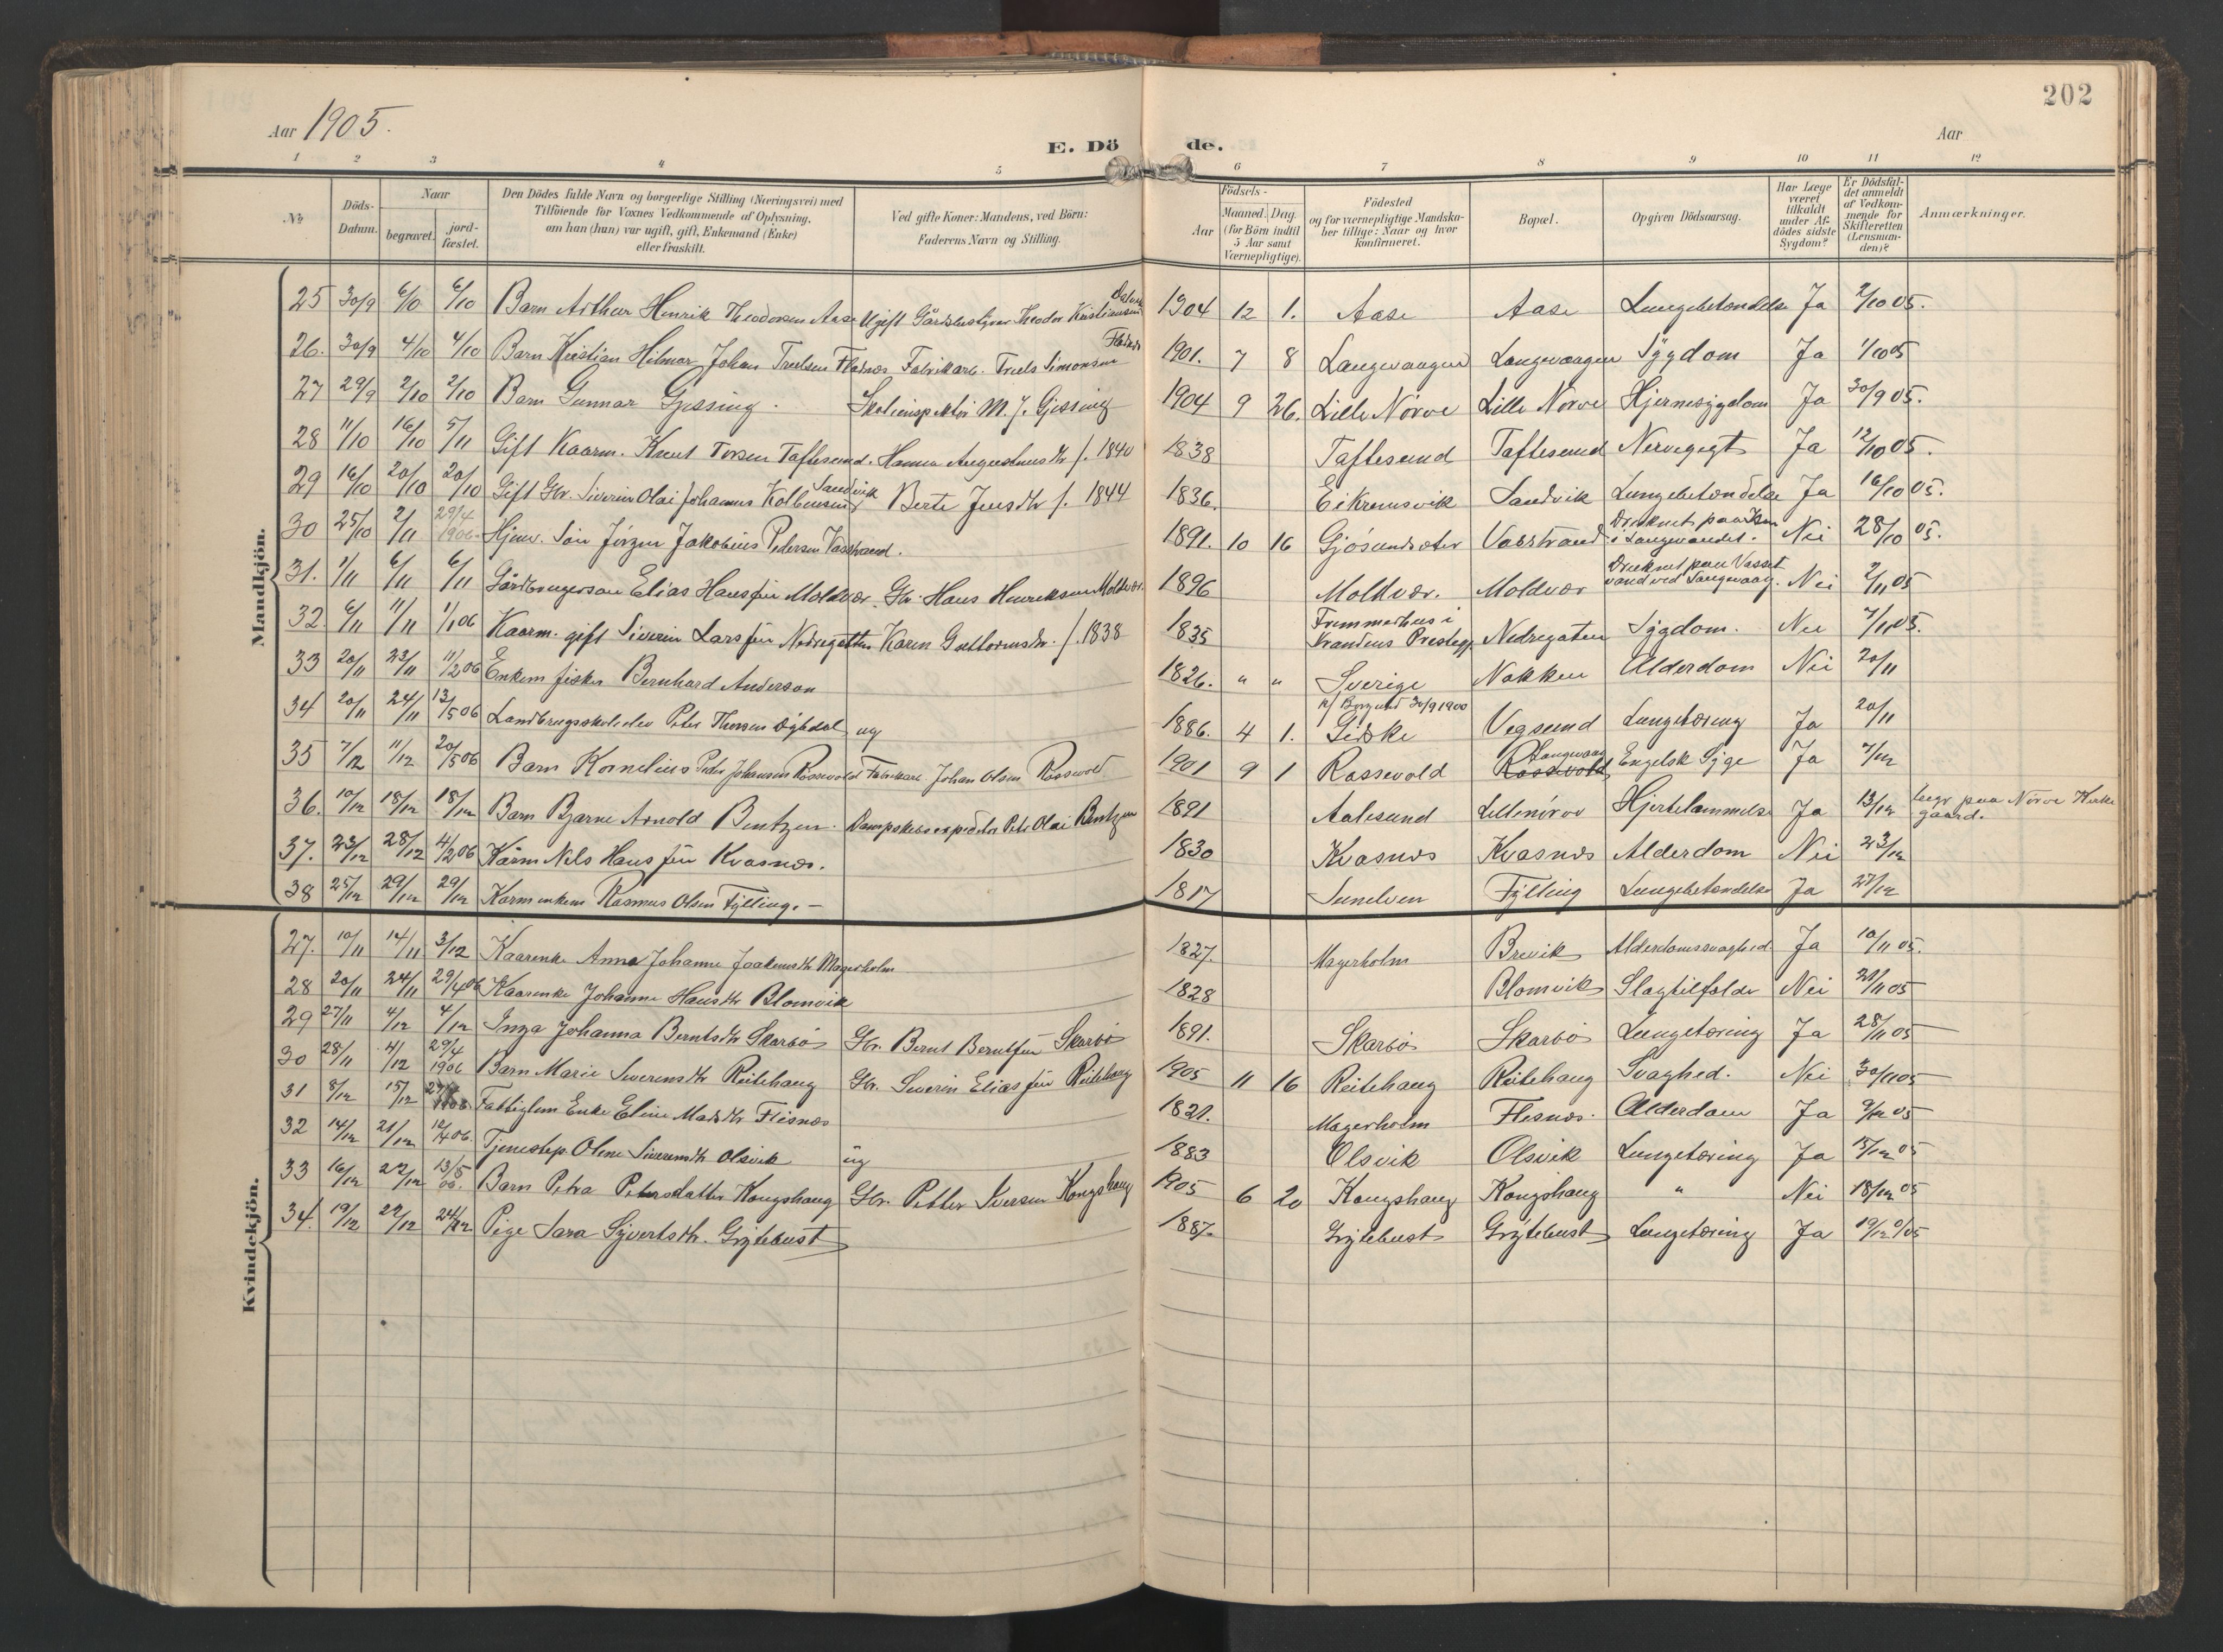 202
Aar 1905.
E. Dö de.
Aar
1 2 3 4 5 6 7 8 9 10 11 12
No
Döds-Datum.
Naar
begravet.
jord-fæstet.
Den Dödes fulde Navn og borgerlige Stilling (Næringsvei) med
Tilföiende for Voxnes Vedkommende af Oplysning,
om han (hun) var ugift, gift, Enkemand (Enke)
eller fraskilt.
Ved gifte Koner: Mandens, ved Börn:
Faderens Navn og Stilling.
Födsels-
Aar
Maaned. Dag.
(for Börn indtil
5 Aar samt
Værnepligtige).
Födested
og for værnepligtige Mandska-
ber tillige: Naar og hvor
konfirmeret.
Bopæl.
Opgiven Dödsaarsag.
Har Læge
været
tilkaldt
under Af-
dödes sidste
Sygdom?
Er Dödsfal-
det anmeldt
af Vedkom-
mende for
Skifteretten
(Lensman-
den)?
Anmærkninger.
Mandkjön.
25 30/9 6/10 6/10 Barn Arthur Henrik Theodorsen Aase Ugift Gårdbestyrer Theodor Kristiansen 1904 12 1. Aase Aase Lungebetændelse Ja 2/10 05.
26. 30/9 4/10 4/10 Barn Kristian Hilmar Johan Truelsen Flisnæs Fabrikarb. Truels Simonsen Flisnæs 1901. 7 8 Langevaagen Langevaagen Sygdom Ja 1/10 05
27 29/9 2/10 2/10 Barn Gunnar Gjessing. Skoleinspektör M. J. Gjessing 1904 9 26. Lille Nörve Lille Nörve Hjernesygdom Ja 30/9 05.
28 11/10 16/10 5/11 Gift Kaarm. Knut Torsen Taftesund. Hanna Augustinusdtr f. 1840 1838 Taftesund Taftesund Nervegigt Ja 12/10 05.
29 16/10 20/10 20/10 Gift Gbr. Siverin Olai Johannes Kolbensen Sandvik Berte Jensdtr f. 1844 1836. Eikremsvik Sandvik Lungebetændelse Ja 16/10 05.
30 25/10 2/11 29/4 1906. Hjemv. Sön Jörgen Jakobius Pedersen Vasstrand. 1891. 10 16 Gjösundsæter Vasstrand Druknet paa i Langevandet. Nei 28/10 05.
31. 1/11 6/11 6/11 Gårdbrugersön Elias Hansen Moldvær. Gbr. Hans Henriksen Moldvær. 1896 Moldvær. Moldvær Druknet paa Vasset vand ved Langevaag. Nei 2/11 05
32. 6/11 11/11 1/1 06 Kaarm. gift Siverin Larssen Nedregotten Karen Guttormsdtr. f. 1838 1835 Fremmerhus i Vrandens Prestegj. Nedregaten Sygdom. Nei 7/11 05.
33 20/11 23/11 11/2 06 Enkem fisker Bernhard Anderson 1826. " " Sverige Nakken Alderdom Nei 20/11
34 20/11 24/11 13/5 06 Landbrugsskoleelev Peter Thorsen ug 1886. 4 1. k/ Borgund 30/9 1900 Giske Vegsund Lungetæring Ja 20/11
35 7/12 11/12 20/5 06 Barn Kornelius Peder Johansen Rossevold Fabrikarb. Johan Olsen Rossevold 1901 9 1 Rassevold Langevaag Rossevold Engelsk Syge Ja 7/12
36. 10/12 18/12 18/12 Barn Bjarne Arnold Bentzen. Dampskibsexpeditör Peter Olai Bentzen 1891 Aalesund Lillenörve Hjertelammelse Ja 13/12 begr. paa Nörve Kirke gaard.
37. 23/12 28/12 4/2 06 Kårm Nels Hanssen Kvasnæs. 1830 Kvasnæs Kvasnæs Alderdom Nei 23/12
38 25/12 29/12 29/12 Karm enkem Rasmus Olsen Fylling. — 1817 Sunelven Fylling Lungebetændelse Ja 27/12
Kvindekjön.
27. 10/11 14/11 3/12 Kaarenke Anna Johanne Joakimsdtr Magerholm 1827. Magerholm Brevik Alderdomssvaghed. Ja 10/11 05.
28 20/11 24/11 29/4 06 Kaarenke Johanne Hansdtr Blomvik 1828 Blomvik Slagtilfælde Nei 21/11 05
29 27/11 4/12 4/12 Inga Johanna Berntsdtr Skarbö Gbr. Bernt Berntsen Skarbö 1891. Skarbö Skarbö Lungetæring Ja 28/11 05
30 28/11 4/12 29/4 1906 Barn Marie Severinsdtr Reitehaug Gbr. Severin Eliassen Reitehaug 1905 11 16 Reitehaug Reitehaug Svaghed. Nei 30/11 05
31 8/12 15/12 1906 Fattiglem Enke Eline Madsdtr Flisnæs 1821. Magerholm Flesnæs. Alderdom Ja 9/12 05
32 14/12 21/12 12/4 06. Tjenestep. Oline Siverinsdtr Olsvik ug 1883 Olsvik Olsvik Lungetæring Ja 15/12 05
33 16/12 22/12 13/5 06. Barn Petra Petersdatter Kongshaug Gbr. Petter Iversen Kongshaug 1905 6 20 Kongshaug Kongshaug " Nei 18/12 05
34. 19/12 22/12 24/12 Pige Sara Syvertsdtr. Grytebust 1887. Grytebust Grytebust Lungetæring Ja 19/12 05